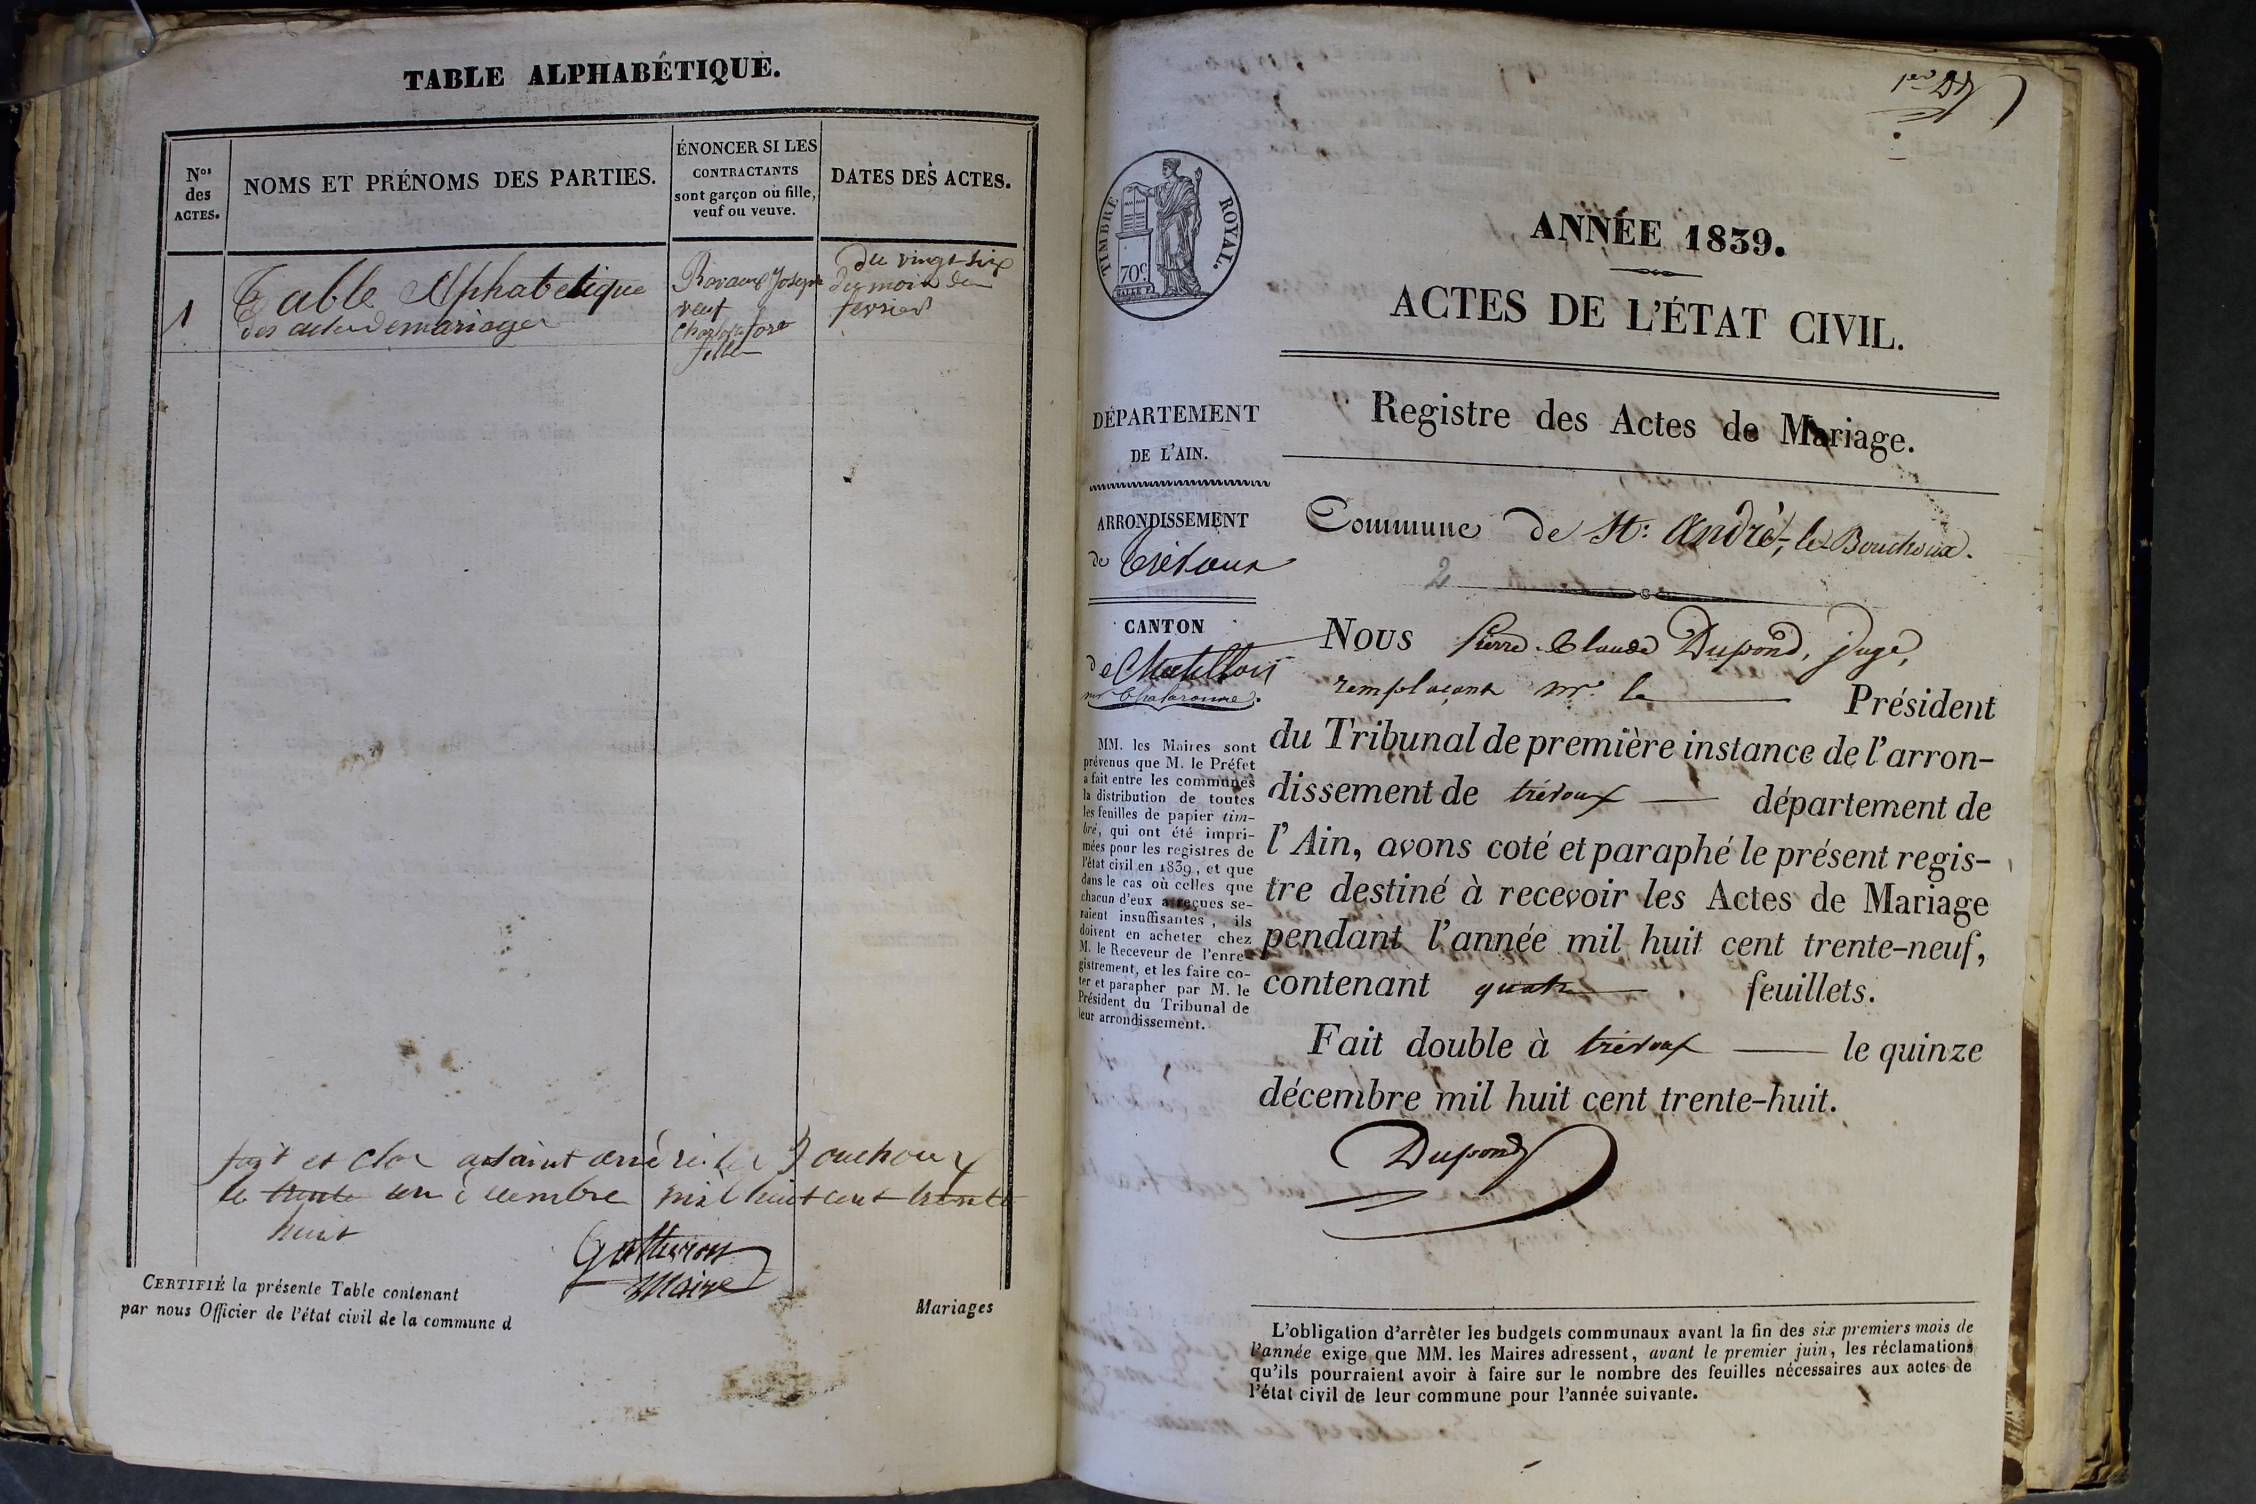 TABLE ALPHABÉTIQUE.
Nos
des
ACTES.
NOMS ET PRÉNOMS DES PARTIES.
ÉNONCER SI LES
CONTRACTANTS
sont garçon ou fille,
veuf ou veuve.
DATES DES ACTES.
1
Table Alphabetique
des actes de mariage
Joseph
veuf
fille
du vingt six
du mois de
fevrier
fait et clos a saint andré les Bouchoux
le trente un decembre mil huit cent trente
huit
Maire
CERTIFIÉ la présente Table contenant
Mariages
par nous Officier de l'état civil de la commune d
1er
TIMBRE ROYAL.
70c
ANNÉE 1839.
ACTES DE L'ÉTAT CIVIL.
DÉPARTEMENT
DE L'AIN.
ARRONDISSEMENT
de Trévoux
CANTON
de Chatillon
sur Chalaronne.
MM. les Maires sont
prévenus que M. le Préfet
a fait entre les communes
la distribution de toutes
les feuilles de papier tim-
bré, qui ont été impri-
mées pour les registres de
l'état civil en 1839, et que
dans le cas où celles que
chacun d'eux a reçues se-
raient insuffisantes, ils
doivent en acheter chez
M. le Receveur de l'enre-
gistrement, et les faire co-
ter et parapher par M. le
Président du Tribunal de
leur arrondissement.
Registre des Actes de Mariage.
Commune de St: André-le-Bouchoux.
2
Nous Pierre-Claude Dupond, juge,
remplaçant mr. le Président
du Tribunal de première instance de l'arron-
dissement de trévoux département de
l'Ain, avons coté et paraphé le présent regis-
tre destiné à recevoir les Actes de Mariage
pendant l'année mil huit cent trente-neuf,
contenant quatre feuillets.
Fait double à trévoux le quinze
décembre mil huit cent trente-huit.
Dupond
L'obligation d'arrêter les budgets communaux avant la fin des six premiers mois de
l'année exige que MM. les Maires adressent, avant le premier juin, les réclamations
qu'ils pourraient avoir à faire sur le nombre des feuilles nécessaires aux actes de
l'état civil de leur commune pour l'année suivante.